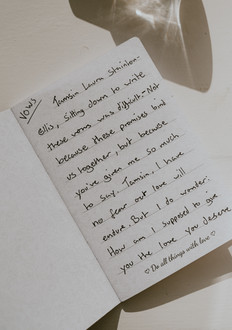 VOWS
Tamsin Laura Stainton-
ellis, sitting down to write
these words was difficult. Not
because these promises bind
us together, but because
you've given me so much
to say. Tamsin, I have
no fear our love will
endure. But I do wonder:
How am I supposed to give
you the love you deserve
♡ Do all things with love ♡